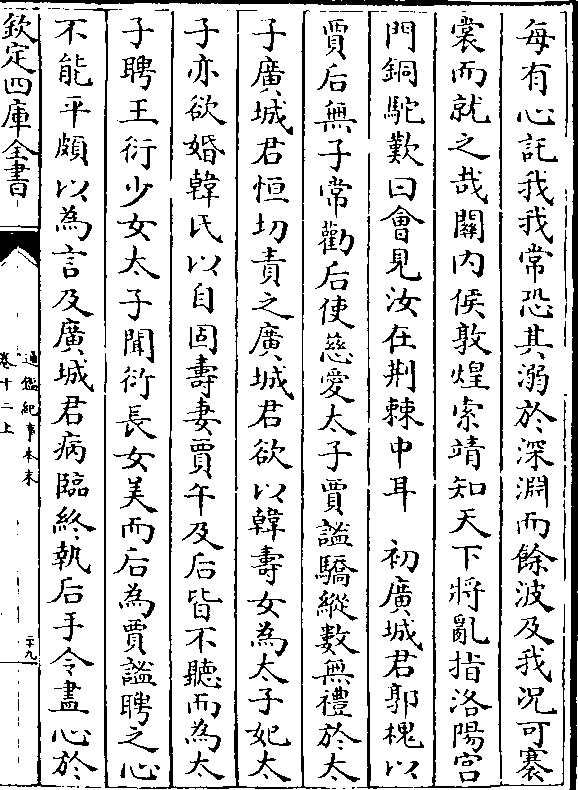 每有心託我我常恐其溺於深淵而餘波及我况可褰
裳而就之哉關内侯敦煌索靖知天下將亂指洛陽宫
門銅駝歎曰會見汝在荆棘中耳　初廣城君郭槐以
賈后無子常勸后使慈愛太子賈謐驕縱數無禮於太
子廣城君恒切責之廣城君欲以韓壽女為太子妃太
子亦欲婚韓氏以自固壽妻賈午及后皆不聽而為太
子聘王衍少女太子聞衍長女美而后為賈謐聘之心
不能平頗以為言及廣城君病臨終執后手令盡心於
欽定四庫全書
通鑑紀事本末
卷十二上
二十九